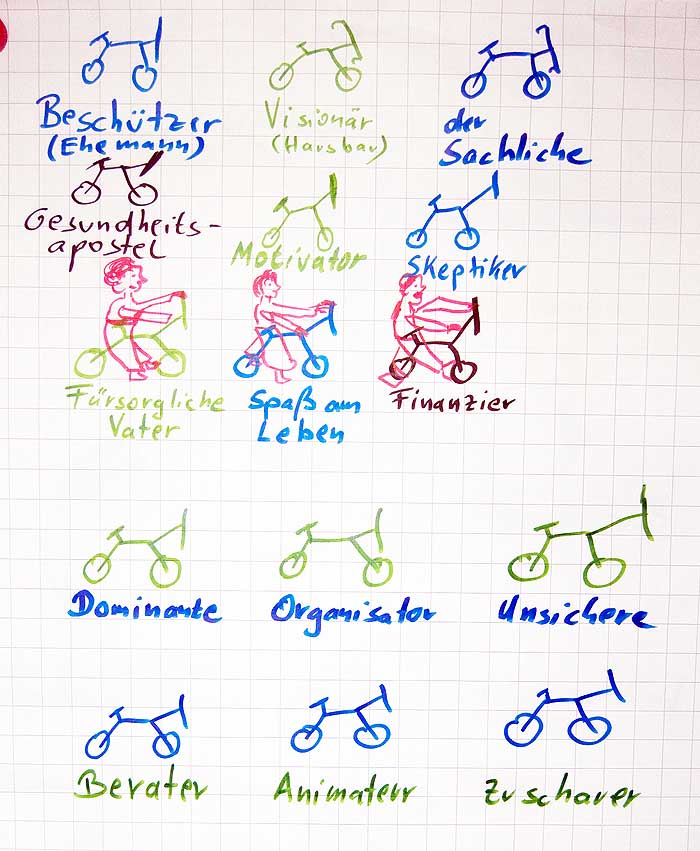 Beschützer
(Ehemann)
Visionär
(Hausbau)
der
Sachliche
Gesundheits-
apostel
Motivator
Skeptiker
Fürsorgliche
Vater
Spaß am
Leben
Finanzier
Dominante
Organisator
Unsichere
Berater
Animateur
Zuschauer